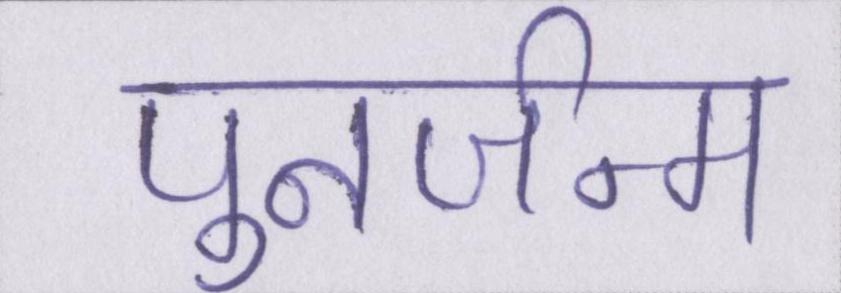 पुनर्जन्म